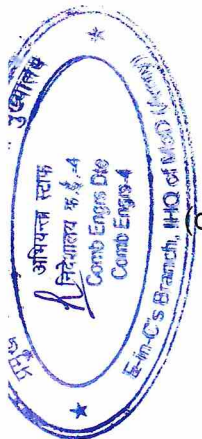 मुख्यालय
अभियन्ता स्टाफ
निदेशालय क.ई.-4
Comb Engrs Dte
Comb Engrs-4
E-in-C's Branch, IHQ of MoD (Army)